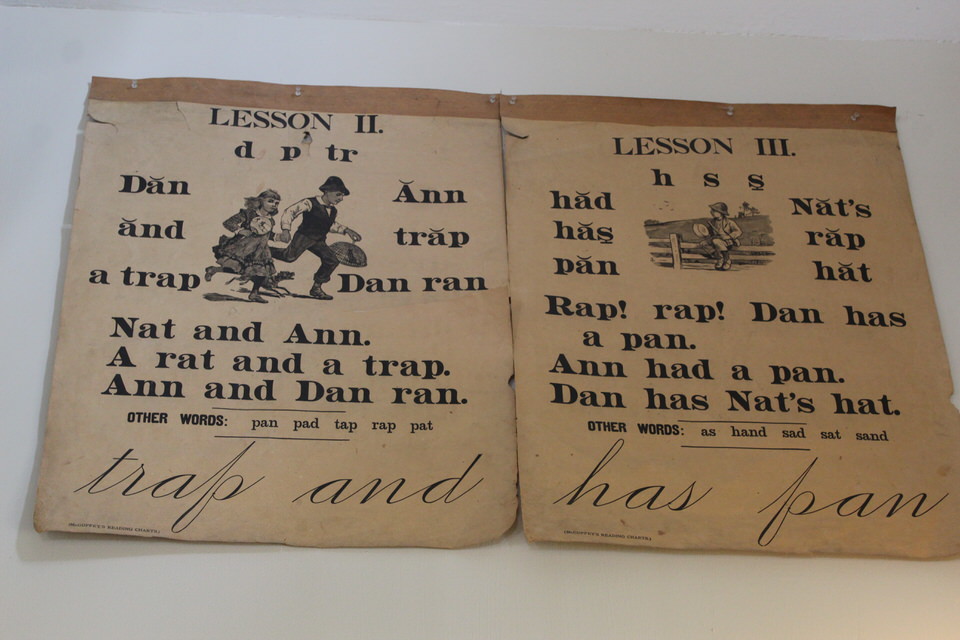 LESSON II.
d p tr
Dăn Ănn
ănd trăp
a trap Dan ran
Nat and Ann.
A rat and a trap.
Ann and Dan ran.
OTHER WORDS: pan pad tap rap pat
trap and
(McGUFFEY'S READING CHARTS.)
LESSON III.
h s s̱
hăd Năt's
hăs̱ răp
păn hăt
Rap! rap! Dan has
a pan.
Ann had a pan.
Dan has Nat's hat.
OTHER WORDS: as hand sad sat sand
has pan
(McGUFFEY'S READING CHARTS.)